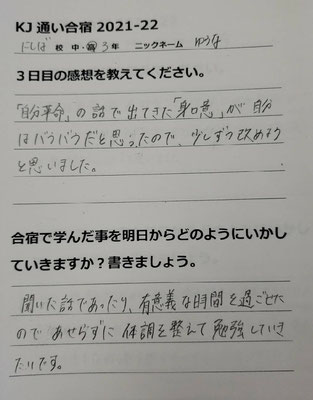 KJ 通い合宿 2021-22
にしば 校 中・高 3年 ニックネーム ゆうな
3日目の感想を教えてください。
「自分革命」の話で出てきた「身口意」が自分
はバラバラだと思ったので、少しずつ改めよう
と思いました。
合宿で学んだ事を明日からどのようにいかし
ていきますか？書きましょう。
聞いた話であったり、有意義な時間を過ごせた
のであせらずに体調を整えて勉強していき
たいです。